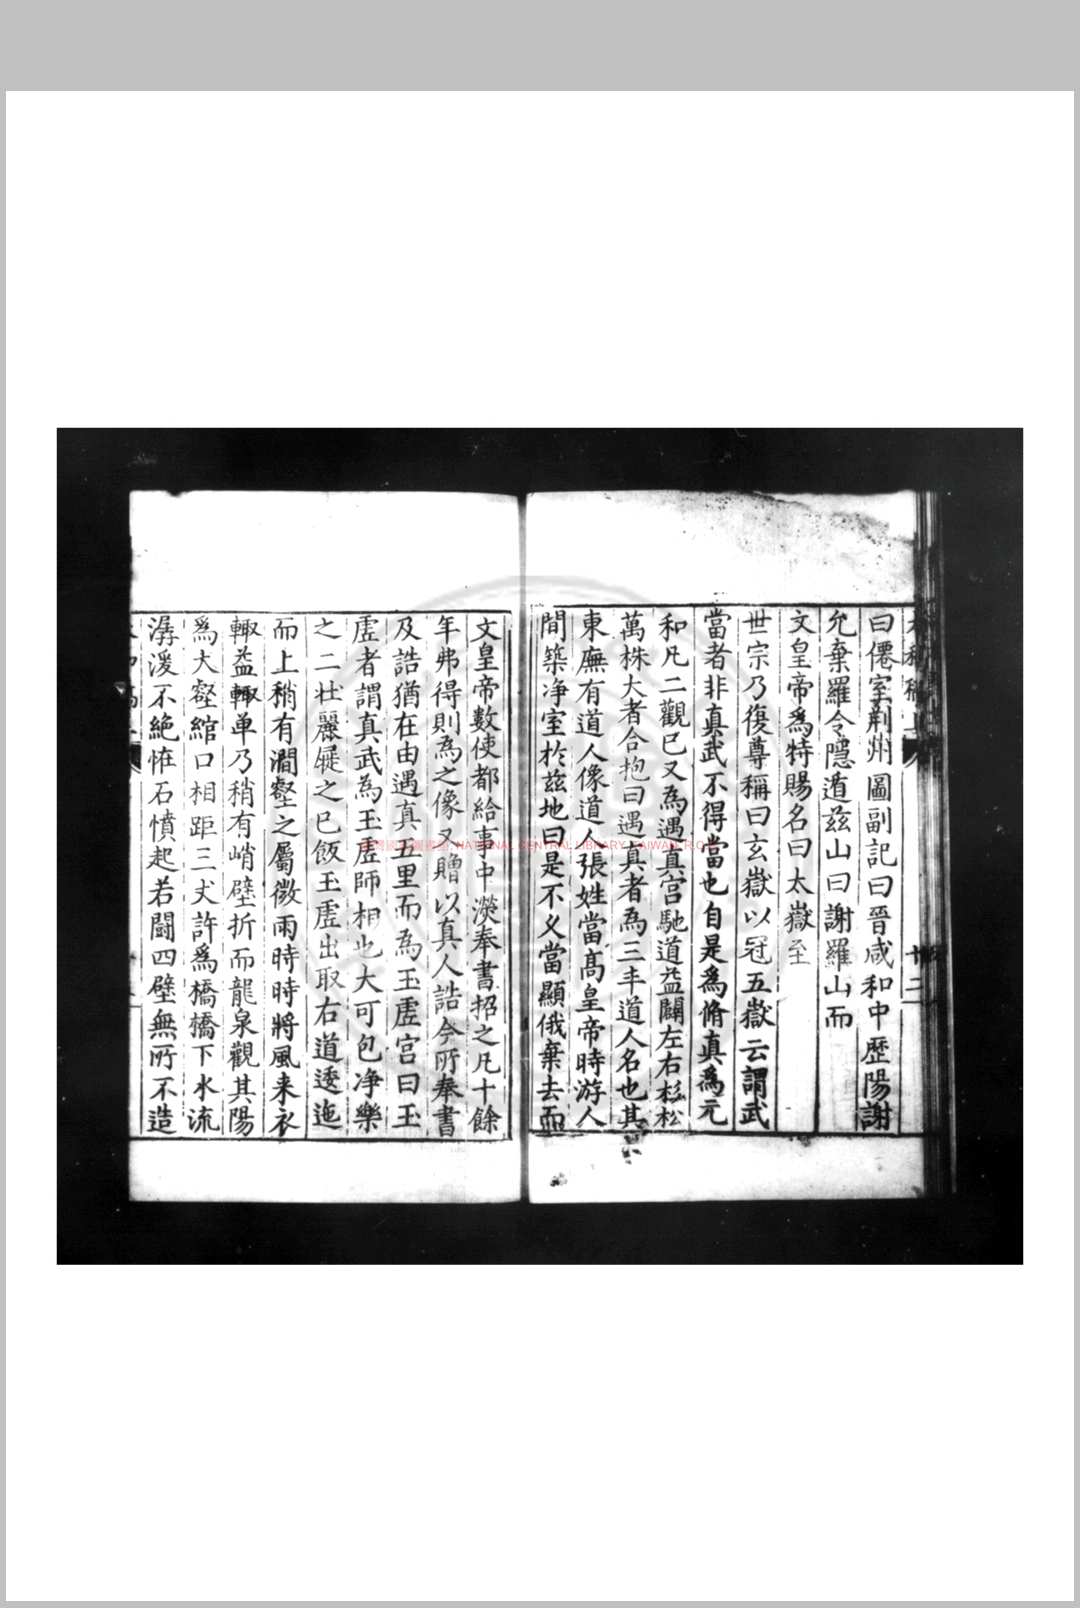 曰僊室荆州圖副記曰晉咸和中歷陽謝
允棄羅令隱遁茲山曰謝羅山而
文皇帝爲特賜名曰太嶽至
世宗乃復尊稱曰玄嶽以冠五嶽云謂武
當者非真武不得當也自是爲脩真爲元
和凡二觀已又為遇真宮馳道益闢左右杉松
萬株大者合抱曰遇真者為三丰道人名也其
東廡有道人像道人張姓當高皇帝時游人
間築净室於茲地曰是不乂當顯俄棄去而
文皇帝數使都給事中濙奉書招之凡十餘
年弗得則為之像又贈以真人誥今所奉書
及誥猶在由遇真五里而為玉虛宮曰玉
虛者謂真武為玉虛師相也大可包净樂
之二壯麗屣之已飯玉虛出取右道逶迤
而上稍有澗壑之屬微雨時時將風来衣
輙益輙单乃稍有峭壁折而龍泉觀其陽
爲大壑綰口相距三丈許爲橋橋下水流
潺湲不絶恠石憤起若闘四壁無所不造
NATIONAL CENTRAL LIBRARY, TAIWAN, R.O.C.